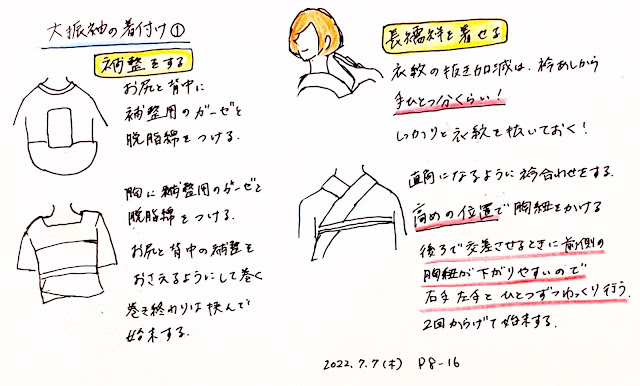 大振袖の着付け①
補整をする
お尻と背中に
補整用のガーゼと
脱脂綿をつける.
胸に補整用のガーゼと
脱脂綿をつける.
お尻と背中の補整を
おさえるようにして巻く
巻き終わりは挟んで
始末する.
長襦袢を着せる
衣紋の抜き加減は、衿あしから
手ひとつ分くらい!
しっかりと衣紋を抜いておく!
直角になるように衿合わせをする.
高めの位置で胸紐をかける
後ろで交差させるときに前側の
胸紐が下がりやすいので
右手左手とひとつずつゆっくり行う.
2回からげて始末する.
2022.7.7(木) P8-16